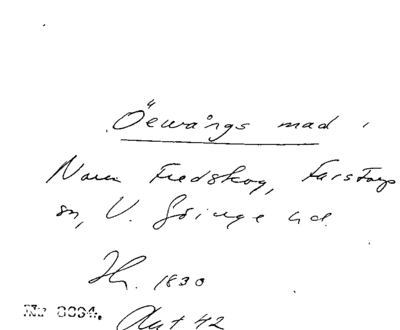 Öewångs mad i
Norra Fredskog, Farstorps
sn, V. Göinge hd.
H. 1830
Akt 42
Nr 8864.